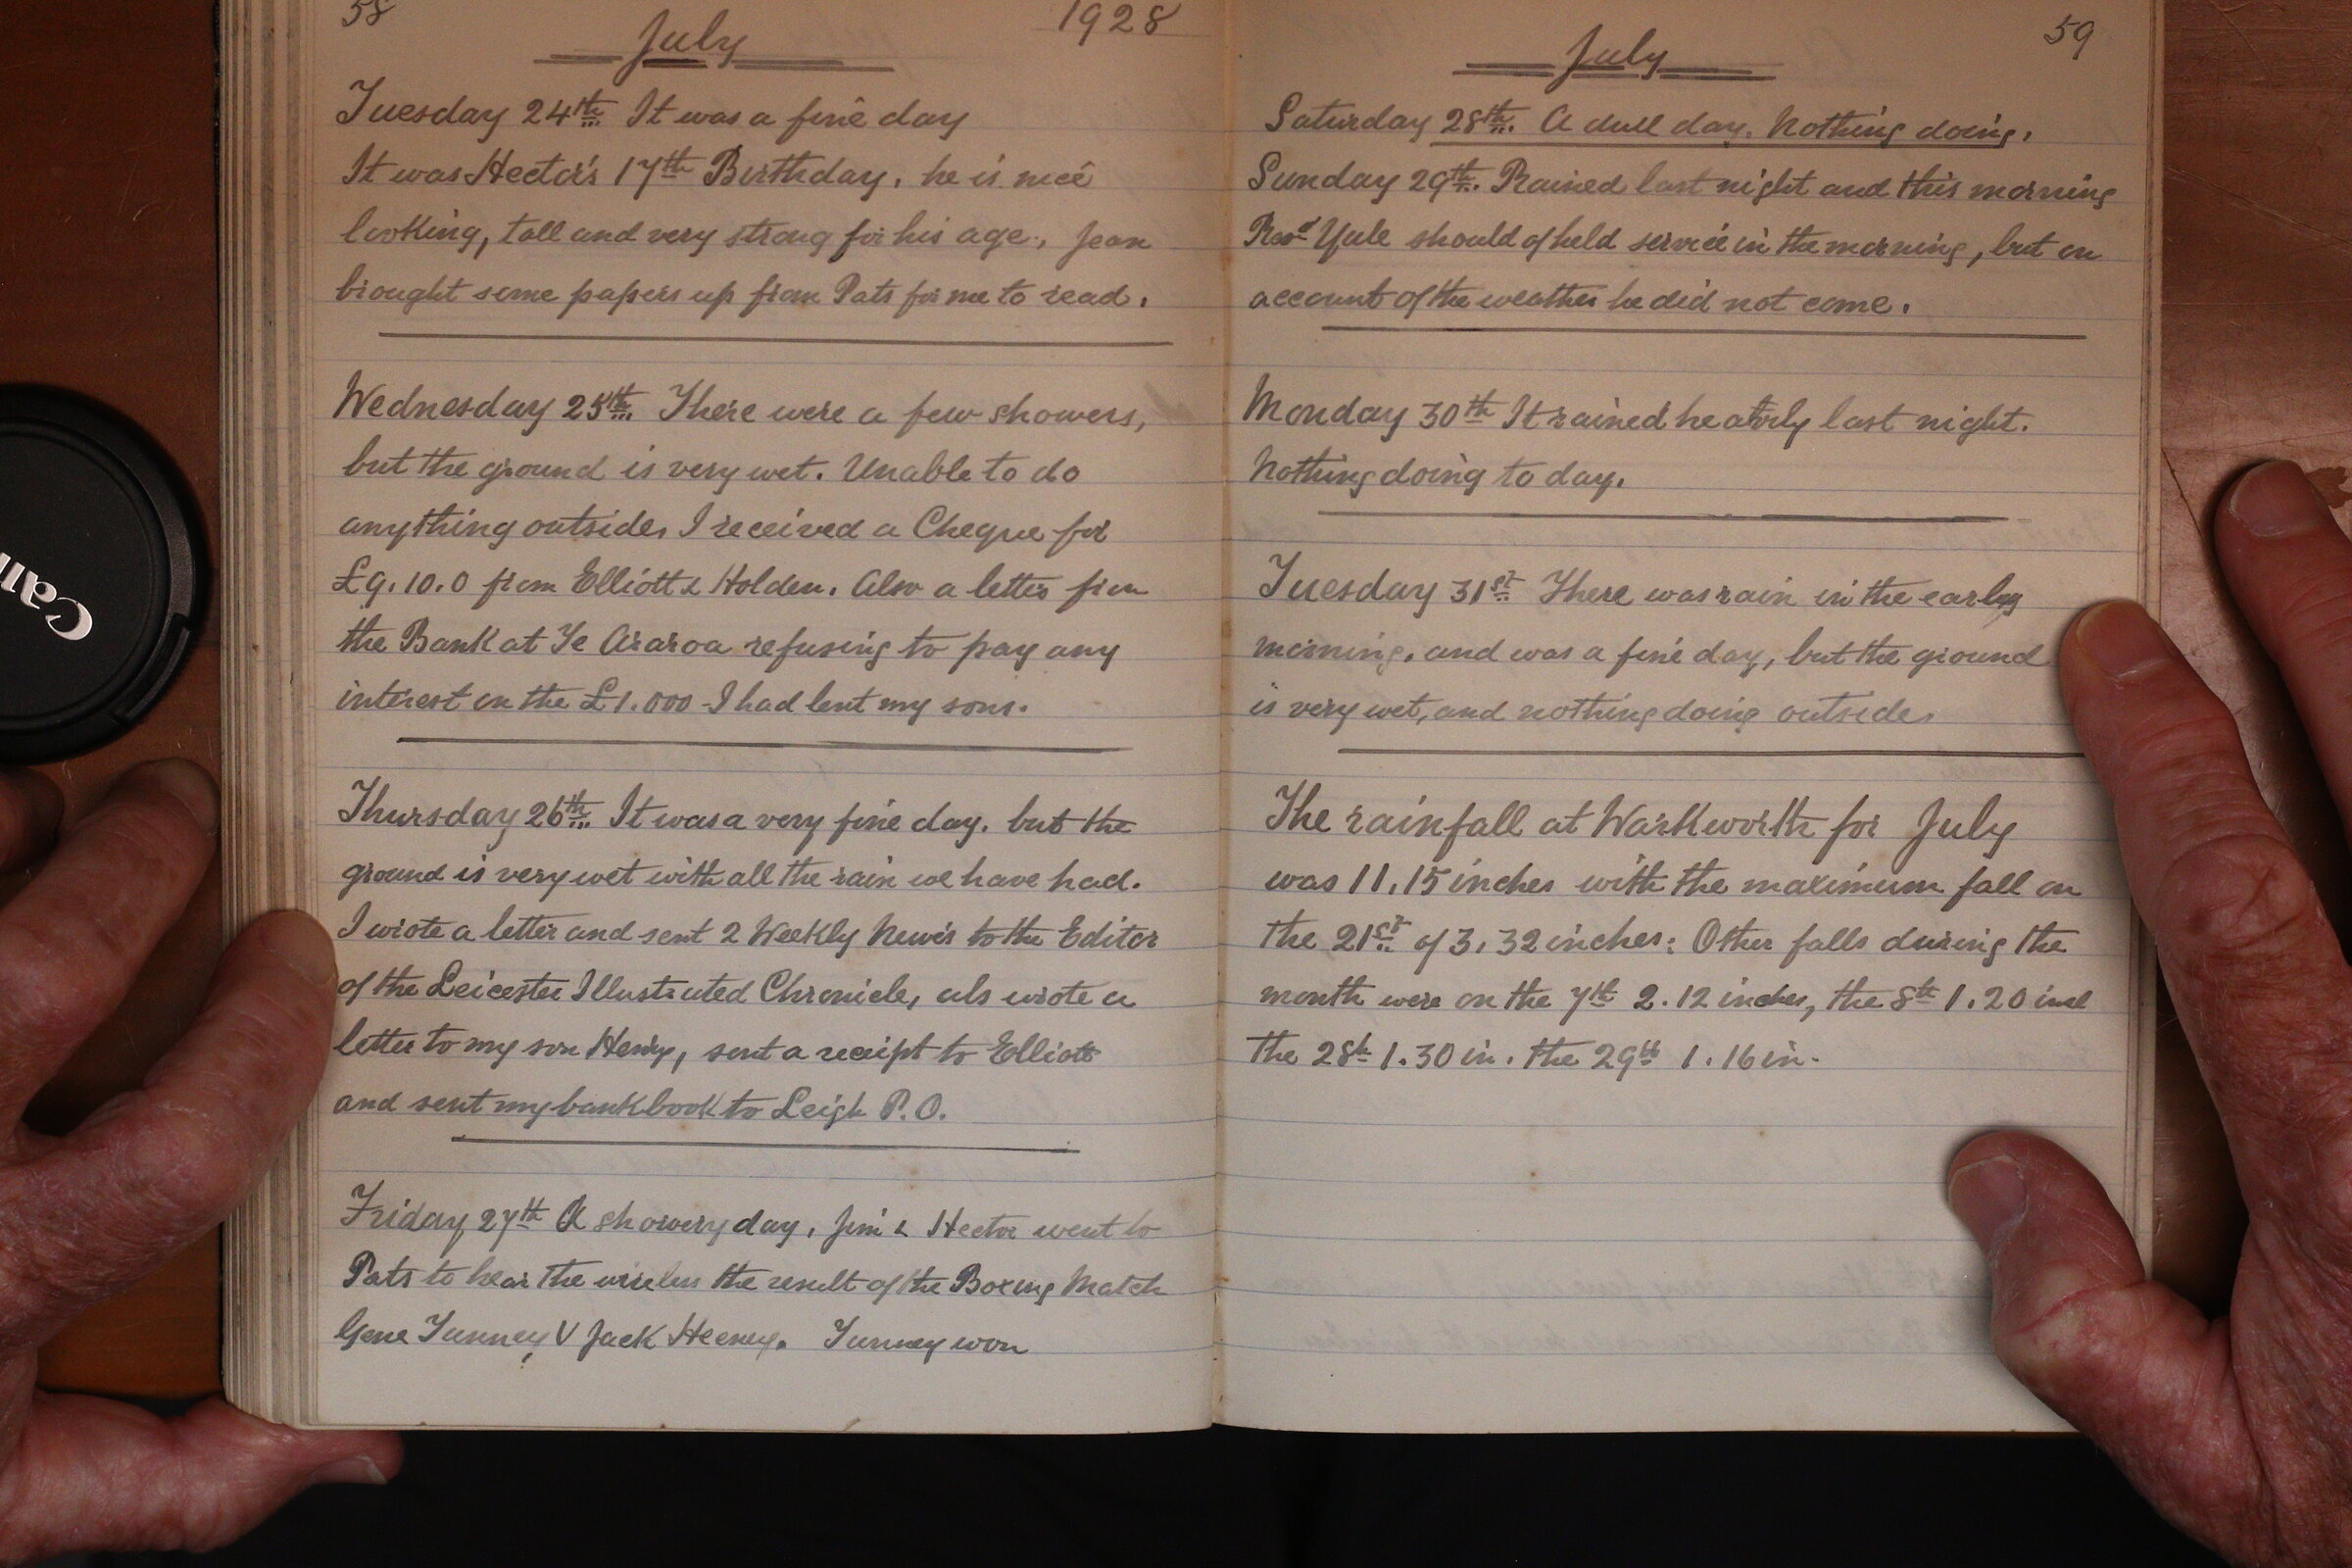 58
1928
July
Tuesday 24th It was a fine day
It was Hector's 17th Birthday, he is nice
looking, tall and very strong for his age, Jean
brought some papers up from Pats for me to read.
Wednesday 25th There were a few showers,
but the ground is very wet. Unable to do
anything outside, I received a Cheque for
£9.10.0 from Elliott & Holden. Also a letter from
the Bank at Te Araroa refusing to pay any
interest on the £1.000 I had lent my sons.
Thursday 26th It was a very fine day. but the
ground is very wet with all the rain we have had.
I wrote a letter and sent 2 Weekly News to the Editor
of the Leicester Illustrated Chronicle, als wrote a
letter to my son Henry, sent a receipt to Elliott
and sent my bankbook to Leigh P.O.
Friday 27th A showery day, Jim & Hector went to
Pats to hear the wireless the result of the Boxing Match
Gene Tunney V Jack Heeney. Tunney won
59
July
Saturday 28th. A dull day. Nothing doing.
Sunday 29th. Rained last night and this morning
Revd Yule should of held service in the morning, but on
account of the weather he did not come.
Monday 30th It rained heavily last night.
Nothing doing to day.
Tuesday 31st There was rain in the early
morning, and was a fine day, but the ground
is very wet, and nothing doing outside.
The rainfall at Warkworth for July
was 11.15 inches with the maximum fall on
the 21st of 3.32 inches: Other falls during the
month were on the 7th 2.12 inches, the 8th 1.20 inch
the 28th 1.30 in. the 29th 1.16 in.
Can